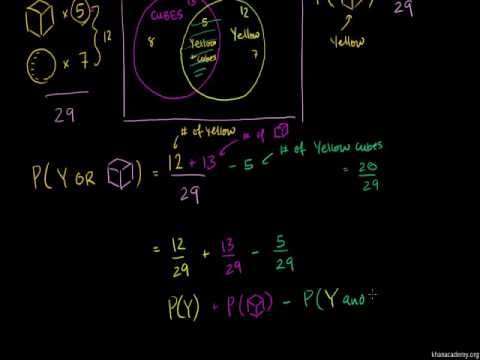 × 5
12
× 7
29
CUBES
8
5
Yellow
+ cubes
12
Yellow
7
29
Yellow
# of Yellow
# of
P(Y OR ) = 12 + 13 - 5
29
# of Yellow cubes
= 20/29
= 12/29 + 13/29 - 5/29
P(Y) + P( ) - P(Y and
khanacademy.org